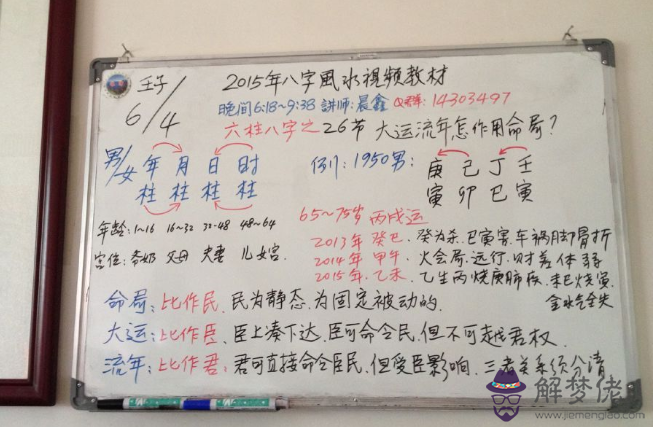 壬子
6/4
2015年八字風水視頻教材
晚间6:18~9:38 講师:晨鑫 Q群:14303497
六柱八字之26节 大运流年怎作用命局?
男/女 年 月 日 时
柱 柱 柱 柱
例:1950男:
庚 己 丁 壬
寅 卯 巳 寅
年龄:1~16 16~32 32-48 48~64
宫位:爷奶 父母 夫妻 儿女宫
65~75岁 丙戌运
2013年 癸巳、癸为杀、巳寅害、车祸脚骨折
2014年 甲午、火会局、远行、财差体弱
2015年 乙未、乙生丙烧庚肺疾、未巳烧寅、
金水气全失
命局:比作民、民为静态、为固定被动的.
大运:比作臣、臣上凑下达、臣可命令民、但不可越君权
流年:比作君:君可直接命令臣民、但受臣影响、三者关系须分清
解梦佬
www.jiemenglao.com